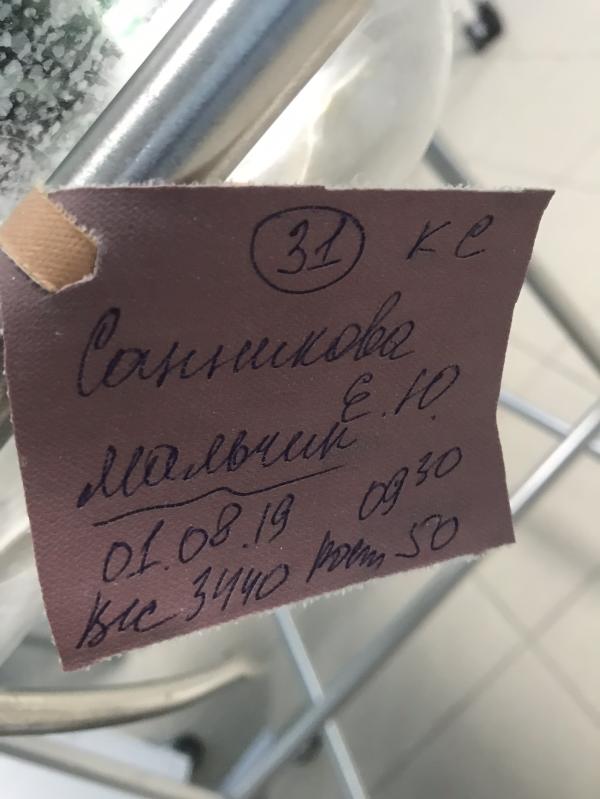 31 КС
Санникова
Е.Ю.
Мальчик
01.08.19 09 30
Вес 3440 Рост 50